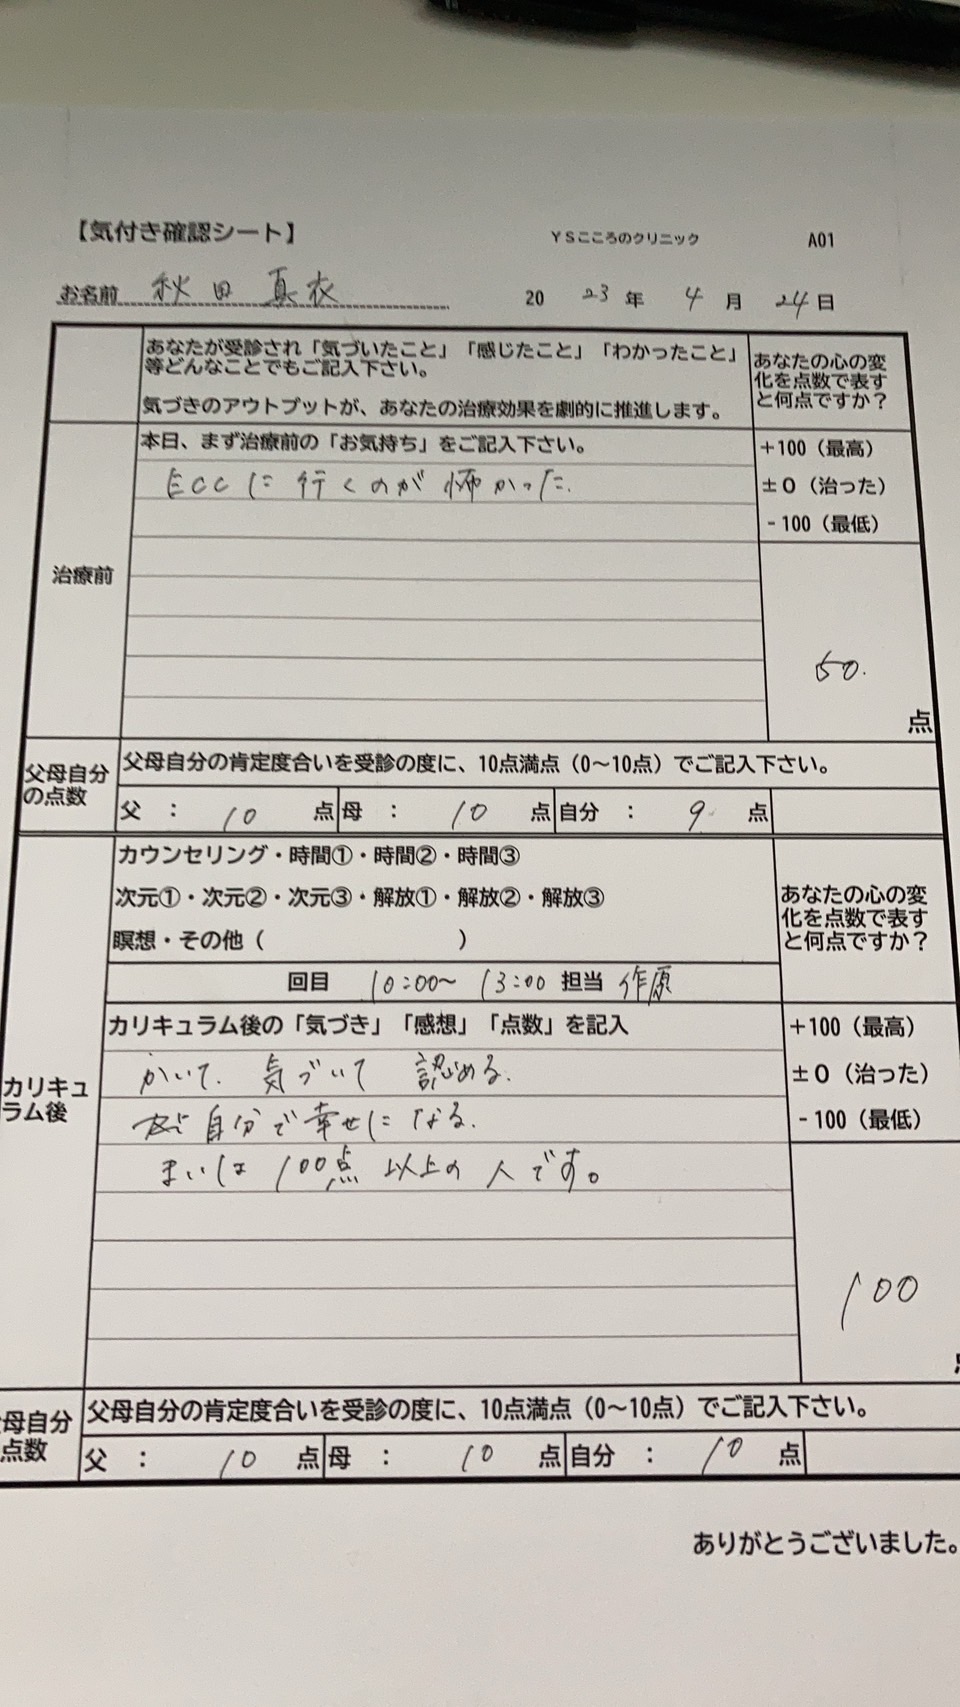 【気付き確認シート】 YSこころのクリニック A01
お名前 秋田 真衣 2023年 4月 24日
あなたが受診され「気づいたこと」「感じたこと」「わかったこと」
等どんなことでもご記入下さい。
気づきのアウトプットが、あなたの治療効果を劇的に推進します。
あなたの心の変
化を点数で表す
と何点ですか？
治療前
本日、まず治療前の「お気持ち」をご記入下さい。
ECCに行くのが怖かった.
+100（最高）
±0（治った）
-100（最低）
50.
点
父母自分
の点数
父母自分の肯定度合いを受診の度に、10点満点（0〜10点）でご記入下さい。
父 ： 10 点 母 ： 10 点 自分 ： 9 点
カウンセリング・時間①・時間②・時間③
次元①・次元②・次元③・解放①・解放②・解放③
瞑想・その他（ ）
あなたの心の変
化を点数で表す
と何点ですか？
回目 10:00〜 13:00 担当 作原
カリキュ
ラム後
カリキュラム後の「気づき」「感想」「点数」を記入
かいて. 気づいて 認める.
自分で幸せになる.
まいは 100点 以上の 人です。
+100（最高）
±0（治った）
-100（最低）
100
母自分
点数
父母自分の肯定度合いを受診の度に、10点満点（0〜10点）でご記入下さい。
父 ： 10 点 母 ： 10 点 自分 ： 10 点
ありがとうございました。